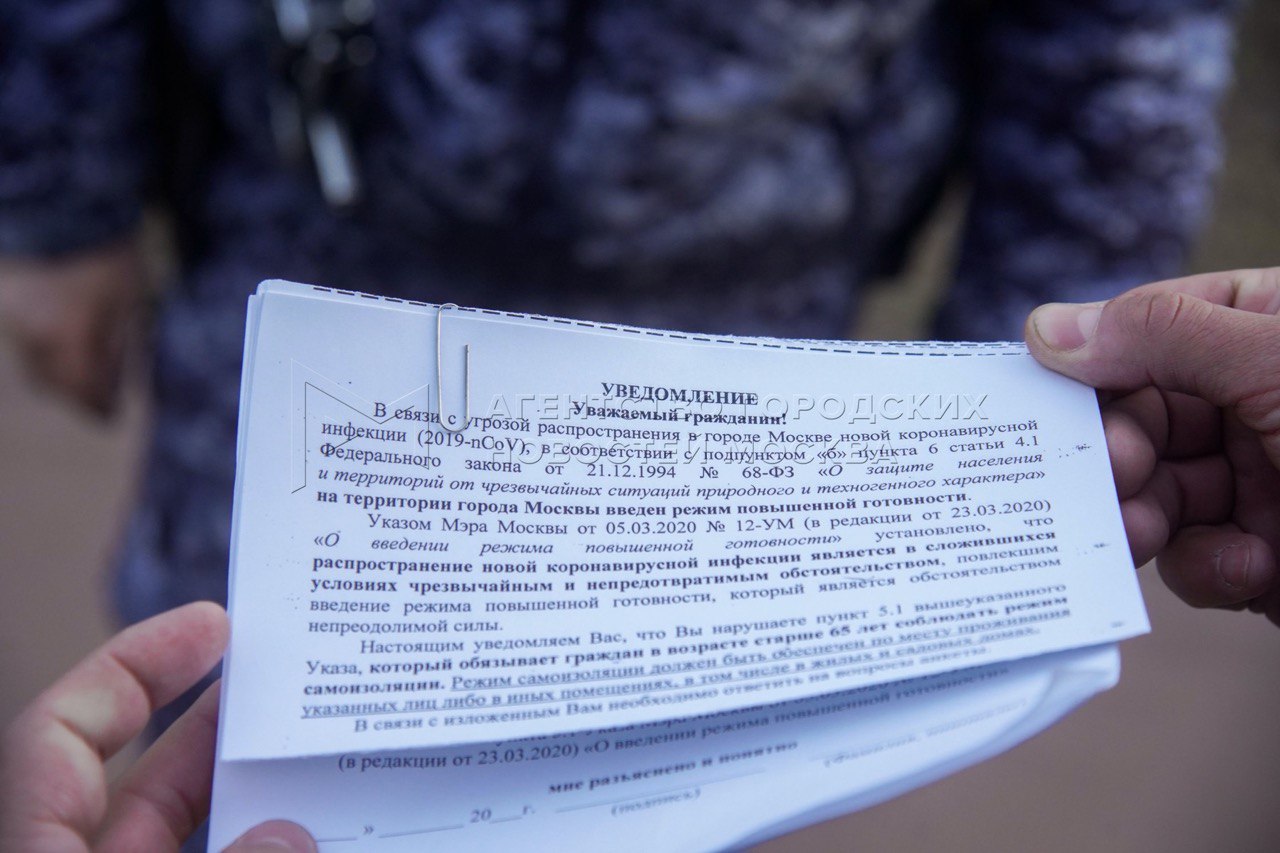 УВЕДОМЛЕНИЕ
Уважаемый гражданин!
В связи с угрозой распространения в городе Москве новой коронавирусной
инфекции (2019-nCoV), в соответствии с подпунктом «б» пункта 6 статьи 4.1
Федерального закона от 21.12.1994 № 68-ФЗ «О защите населения
и территорий от чрезвычайных ситуаций природного и техногенного характера»
на территории города Москвы введен режим повышенной готовности.
Указом Мэра Москвы от 05.03.2020 № 12-УМ (в редакции от 23.03.2020)
«О введении режима повышенной готовности» установлено, что
распространение новой коронавирусной инфекции является в сложившихся
условиях чрезвычайным и непредотвратимым обстоятельством, повлекшим
введение режима повышенной готовности, который является обстоятельством
непреодолимой силы.
Настоящим уведомляем Вас, что Вы нарушаете пункт 5.1 вышеуказанного
Указа, который обязывает граждан в возрасте старше 65 лет соблюдать режим
самоизоляции. Режим самоизоляции должен быть обеспечен по месту проживания
указанных лиц либо в иных помещениях, в том числе в жилых и садовых домах.
В связи с изложенным Вам необходимо ответить на вопросы анкеты.
(в редакции от 23.03.2020) «О введении режима повышенной готовности»
мне разъяснено и понятно
(подпись)
» 20 г.
АГЕНТСТВО ГОРОДСКИХ
НОВОСТЕЙ МОСКВА